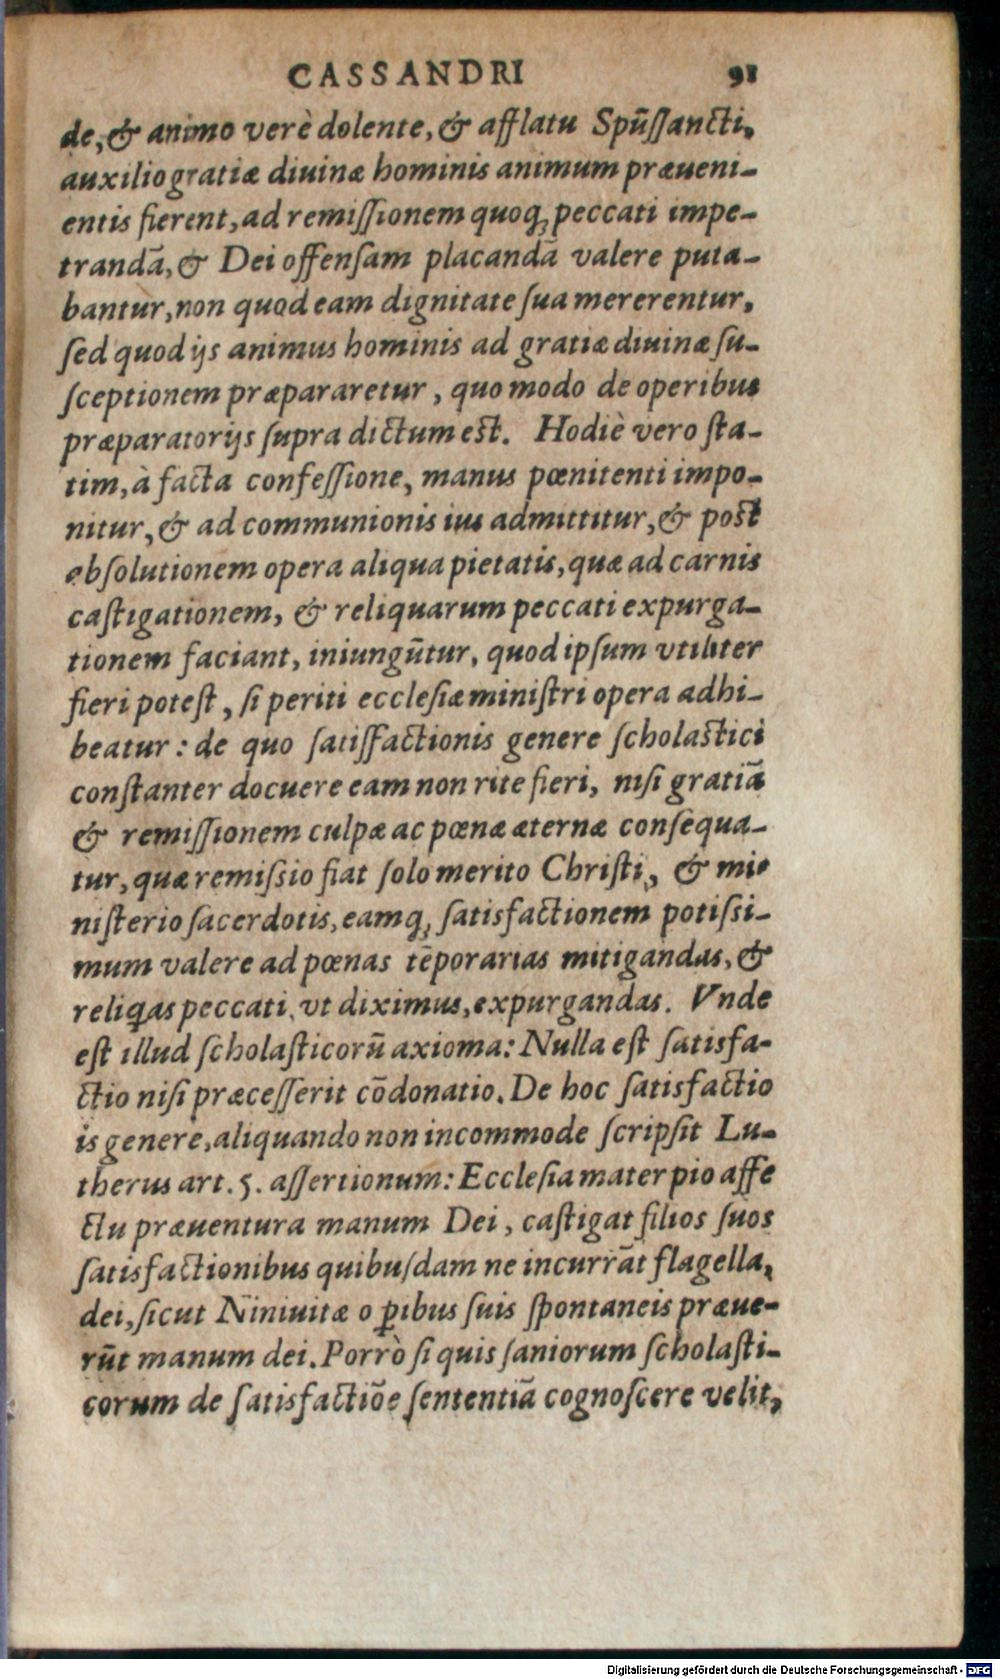 CASSANDRI 91
de, & animo verè dolente, & afflatu Spūſſancti,
auxilio gratiæ diuinæ hominis animum præueni-
entis fierent, ad remiſſionem quoq; peccati impe-
trandā, & Dei offenſam placandā valere puta-
bantur, non quod eam dignitate ſua mererentur,
ſed quod ijs animus hominis ad gratiæ diuinæ ſu-
ſceptionem præpararetur, quo modo de operibus
præparatorijs ſupra dictum est. Hodiè vero ſta-
tim, à facta confeſſione, manus pœnitenti impo-
nitur, & ad communionis ius admittitur, & post
abſolutionem opera aliqua pietatis, quæ ad carnis
caſtigationem, & reliquarum peccati expurga-
tionem faciant, iniungūtur, quod ipſum vtiliter
fieri poteſt, ſi periti eccleſiæ miniſtri opera adhi-
beatur: de quo ſatiſfactionis genere ſcholastici
conſtanter docuere eam non rite fieri, niſi gratiā
& remiſſionem culpæ ac pœnæ æternæ conſequa-
tur, quæ remiſsio fiat ſolo merito Chriſti, & mi-
niſterio ſacerdotis, eamq; ſatisfactionem potiſsi-
mum valere ad pœnas tēporarias mitigandas, &
reliqas peccati, vt diximus, expurgandas. Vnde
eſt illud ſcholaſticorū axioma: Nulla eſt ſatisfa-
ctio niſi præceſſerit cōdonatio. De hoc ſatisfactio
is genere, aliquando non incommode ſcripſit Lu-
therus art. 5. aſſertionum: Eccleſia mater pio affe
ctu præuentura manum Dei, caſtigat filios ſuos
ſatisfactionibus quibuſdam ne incurrāt flagella,
dei, ſicut Niniuitæ o ꝑibus ſuis ſpontaneis præue-
rūt manum dei. Porrò ſi quis ſaniorum ſcholaſti-
corum de ſatisfactiōe ſententiā cognoſcere velit,
Digitalisierung gefördert durch die Deutsche Forschungsgemeinschaft - DFG